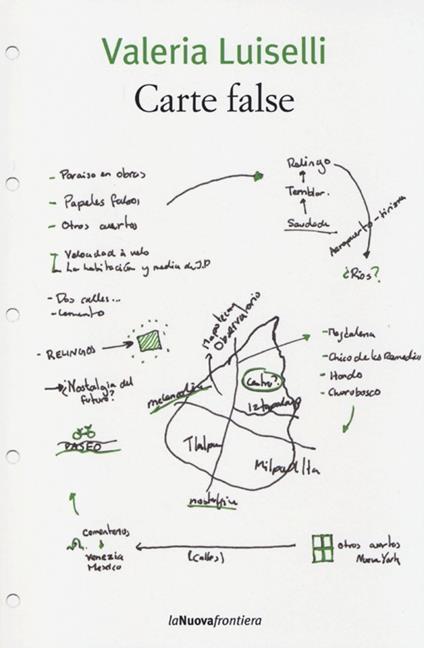 Valeria Luiselli
Carte false
- Paraiso en obras
- Papeles falsos
- Otros cuartos
Velocidad à velo
La habitación y media de J.B
- Dos calles...
- Cemento
- RELINGOS
¿Nostalgia del
futuro?
PASEO
Relingo
Temblor.
Saudade
Aeropuerto
¿Ríos?
Mapoteca
Observatorio
melancolía
Centro?
Iztapalapa
Tlalpan
Milpa Alta
nostalgia
- Magdalena
- Chico de los Remedios
- Hondo
- Churubusco
cementerios
venezia
Mexico
(calles)
otros cuartos
Nueva York
laNuovafrontiera